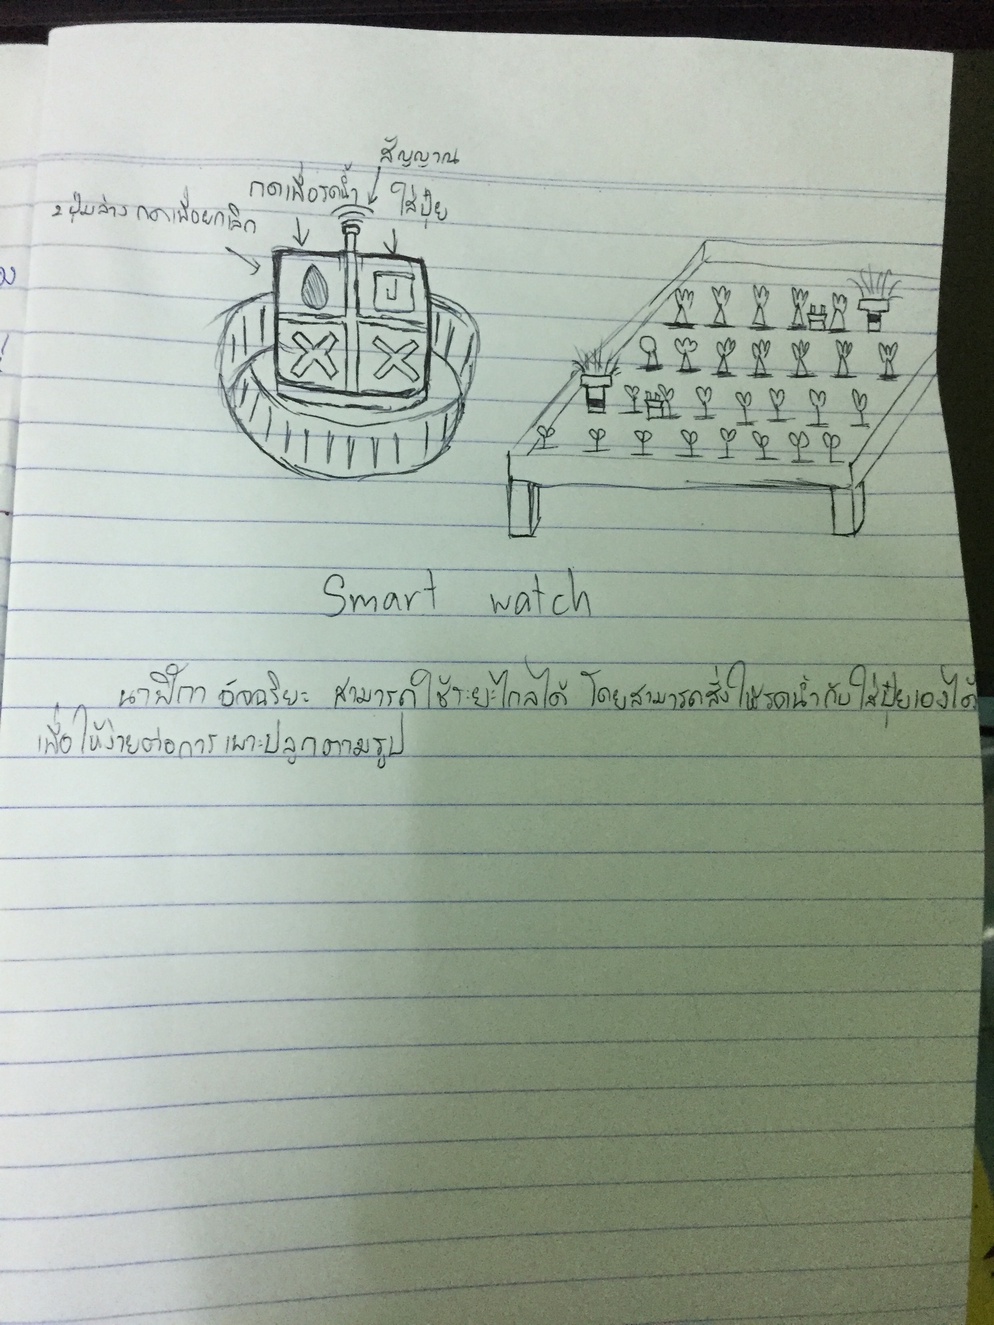 สัญญาณ
กดเพื่อรดน้ำ ใส่ปุ๋ย
2 ปุ่มล่าง กดเพื่อยกเลิก
Smart watch
นาฬิกา อัจฉริยะ สามารถใช้ระยะไกลได้ โดยสามารถสั่งให้รดน้ำกับใส่ปุ๋ยเองได้
เพื่อให้ง่ายต่อการเพาะปลูกตามรูป